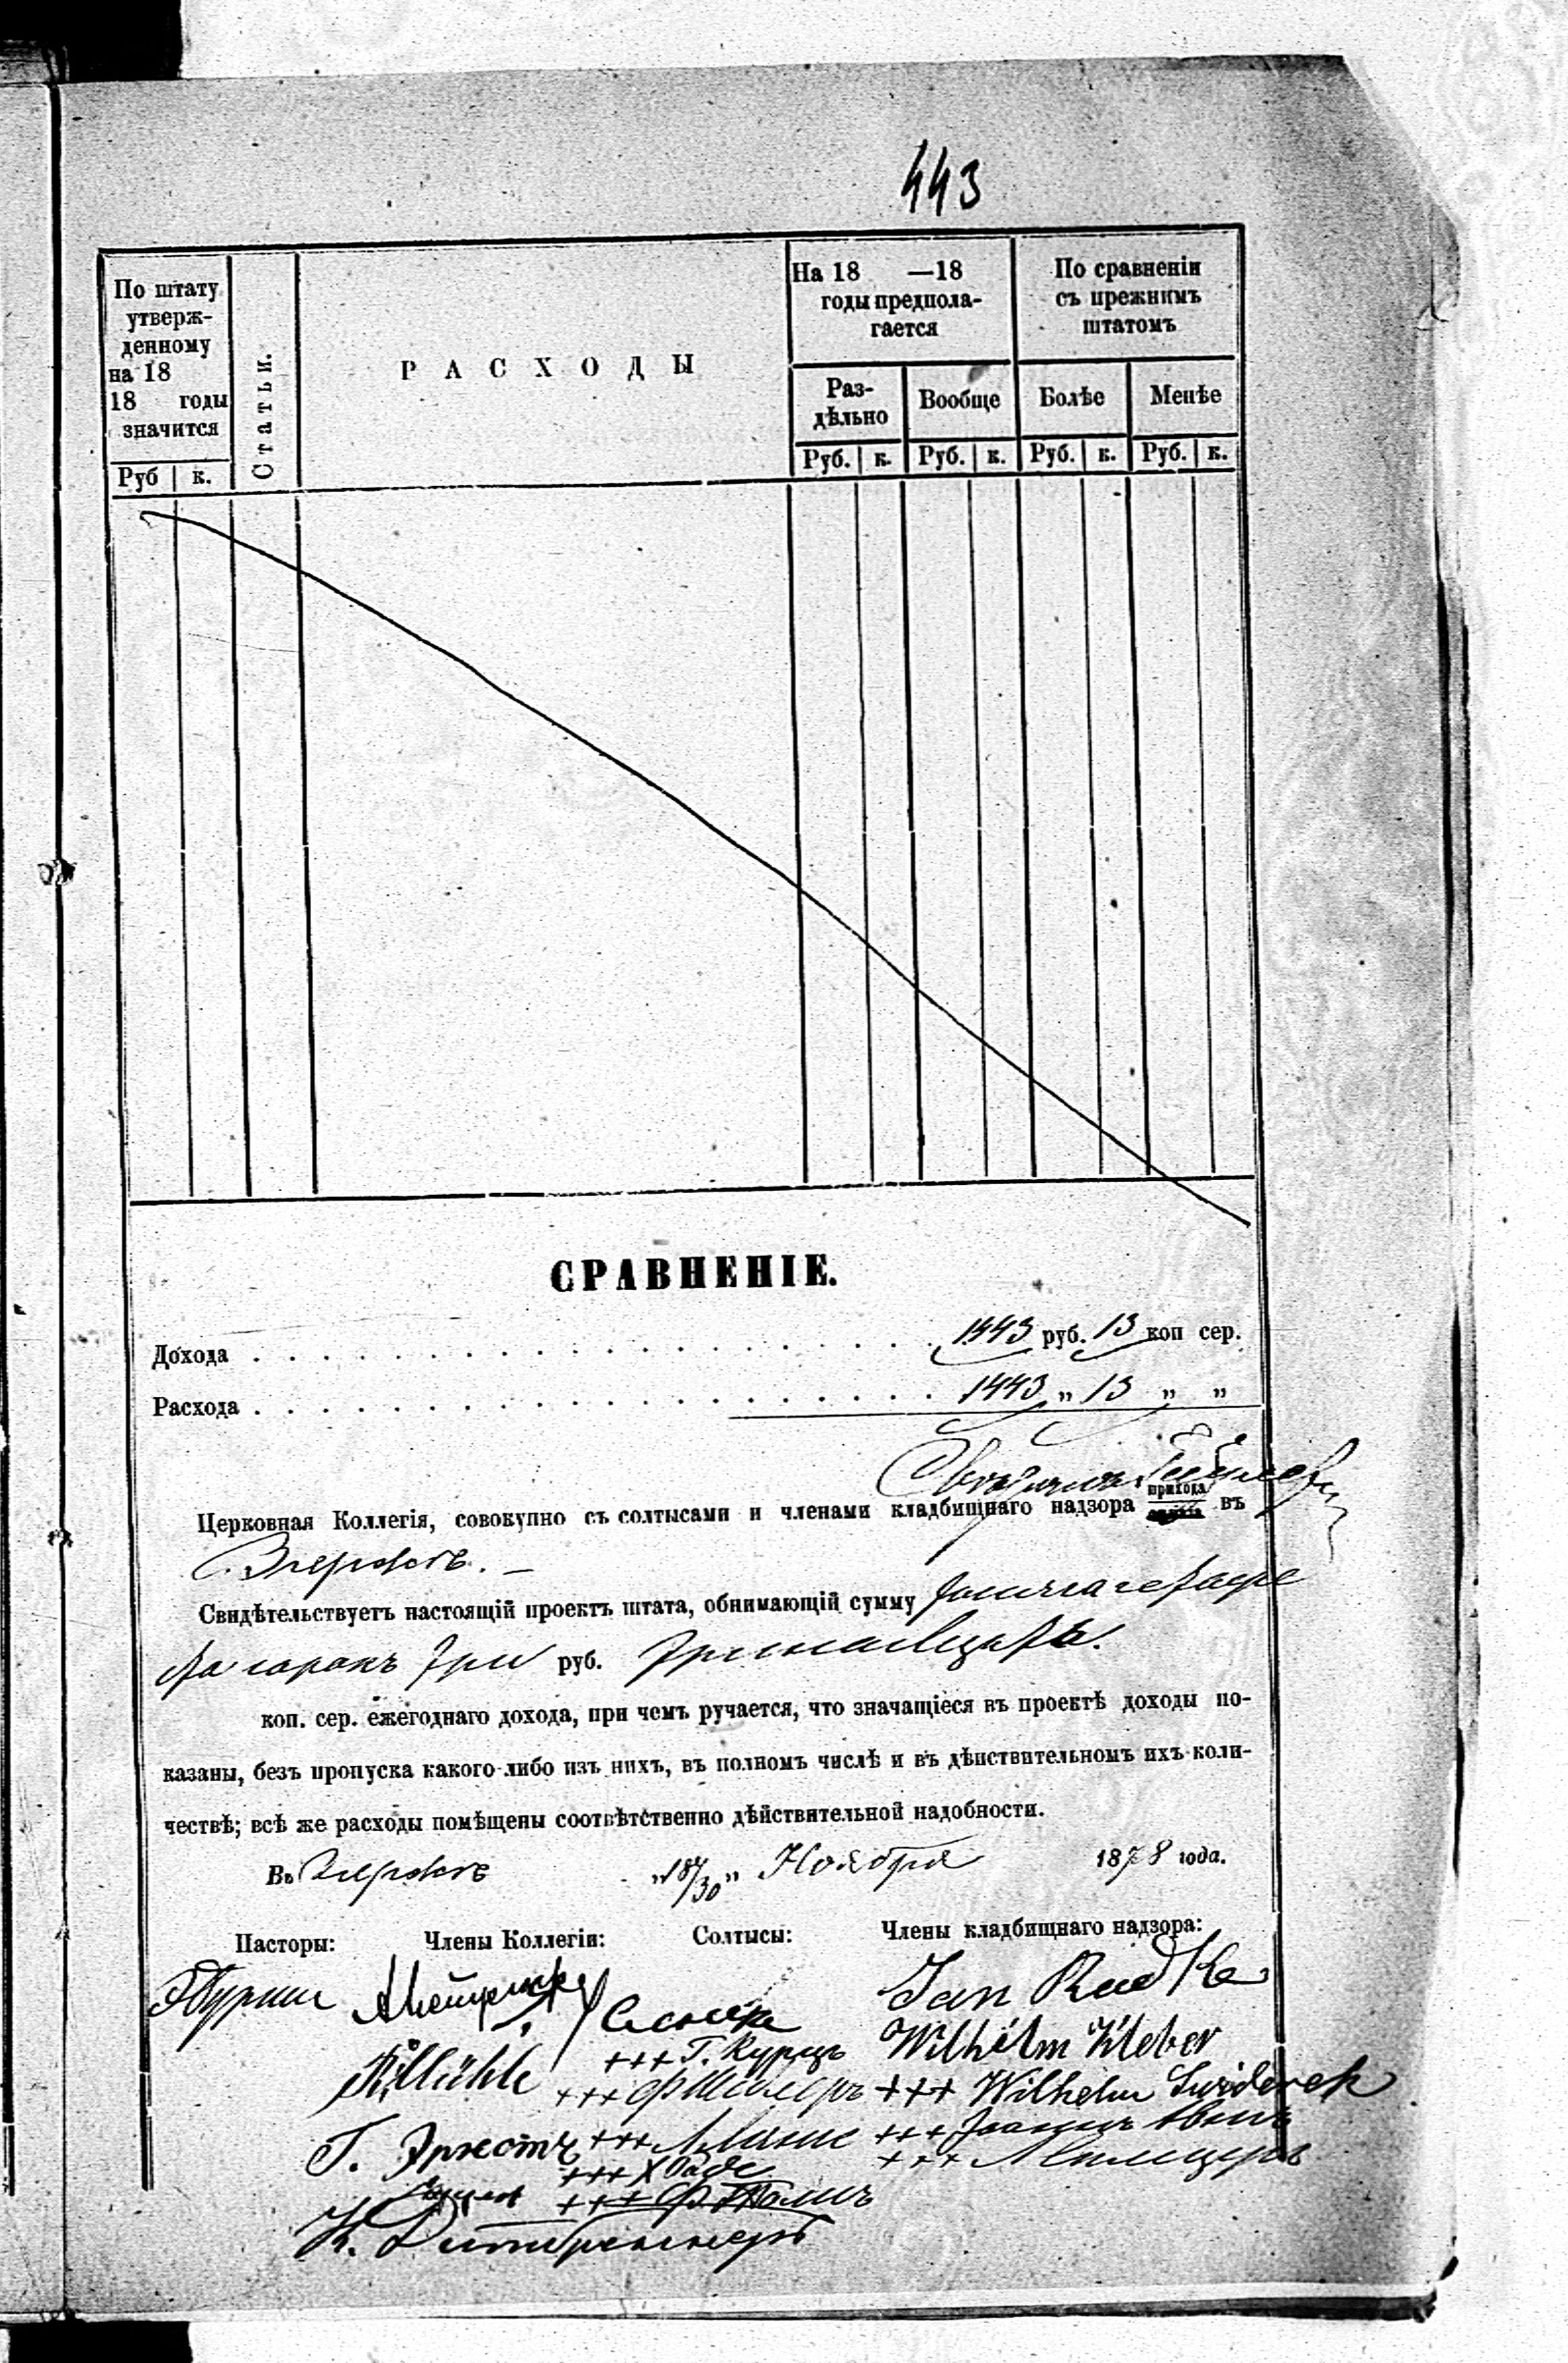 443
По штату
утверж-
денному
на 18
18 годы
значится
Статьи.
РАСХОДЫ
На 18 —18
годы предпола-
гается
По сравненіи
съ прежнимъ
штатомъ
Раз-
дѣльно
Вообще
Болѣе
Менѣе
Руб к.
Руб. к. Руб. к. Руб. к. Руб. к.
СРАВНЕНІЕ.
Дохода . . . 1443 руб. 13 коп сер.
Расхода . . . 1443 „ 13 „ „
Церковная Коллегія, совокупно съ солтысами и членами кладбищнаго надзора прихода въ
Згержѣ.
Свидѣтельствуетъ настоящій проектъ штата, обнимающій сумму
сорокъ три руб. тринадцать
коп. сер. ежегоднаго дохода, при чемъ ручается, что значащіеся въ проектѣ доходы по-
казаны, безъ пропуска какого-либо изъ нихъ, въ полномъ числѣ и въ дѣйствительномъ ихъ коли-
чествѣ; всѣ же расходы помѣщены соотвѣтственно дѣйствительной надобности.
Въ Згержѣ „18/30„ Ноября 1878 года.
Пасторы: Члены Коллегіи: Солтысы: Члены кладбищнаго надзора:
Jan Radke
+++ Г. Курцъ Wilhelm Kleber
+++ +++ Wilhelm Swiderek
Г. Эрнстъ +++ +++
+++ +++
+++
К.